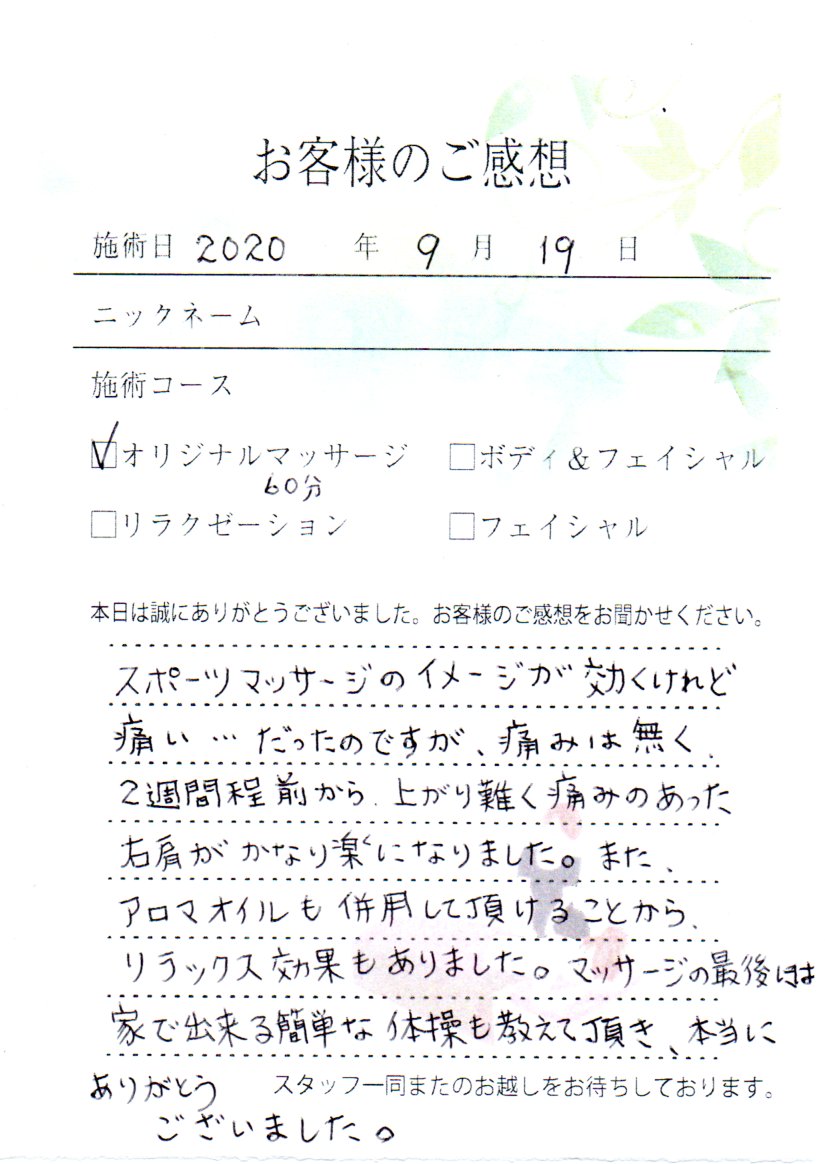 お客様のご感想
施術日 2020 年 9 月 19 日
ニックネーム
施術コース
☑オリジナルマッサージ □ボディ&フェイシャル
60分
□リラクゼーション □フェイシャル
本日は誠にありがとうございました。お客様のご感想をお聞かせください。
スポーツマッサージのイメージが効くけれど
痛い…だったのですが、痛みは無く、
2週間程前から、上がり難く痛みのあった
右肩がかなり楽くになりました。また、
アロマオイルも併用して頂けることから、
リラックス効果もありました。マッサージの最後には
家で出来る簡単な体操も教えて頂き、本当に
ありがとう スタッフ一同またのお越しをお待ちしております。
ございました。